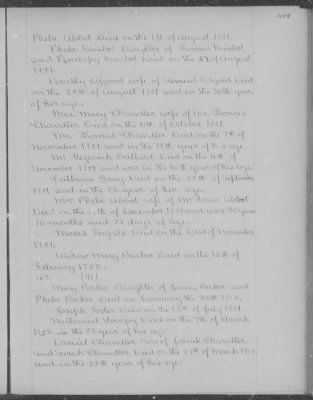 Phebe Abbot Died on the 1st of August 1751.
Phebe Kimbol Daughter of Thomas Kimbol
and Penelopy Kimbol Died on the 29 of August
1751.
Dorothy Osgood wife of Samuel Osgood Died
on the 25th of August 1751 and in the 36th year
of her age.
Mrs. Mary Chandler wife of Mr. Thomas
Chandler Died on the 4th of October 1751.
Mr. Thomas Chandler Died on the 7th of
November 1751 and in the 75th year of his age
Mr. Ballard Died on the 4th of
November 1751 and was in the year of his age.
Catharine Gray Died on the 25th of September
1751 and in the 52 year of her age.
Mrs Phebe Abbot wife of Mr. Isaac Abbot
Died on the of December 1751 and was 35 years
10 months and 21 days of age.
Moses Ingals Died on the 23rd of November
1751.
Widow Mary Barker Died on the 10th of
February 1752.
Mary Parker Daughter of Parker and
Phebe Parker Died on January the 30th 1752.
Joseph Foster Died on the 13th of July 1751.
Nathaniel Lovejoy Died on the 9th of March
1752 in the year of his age
Daniel Chandler Son of Josiah Chandler
and Sarah Chandler Died on the 27th of March 1752
and in the 25th year of his age.